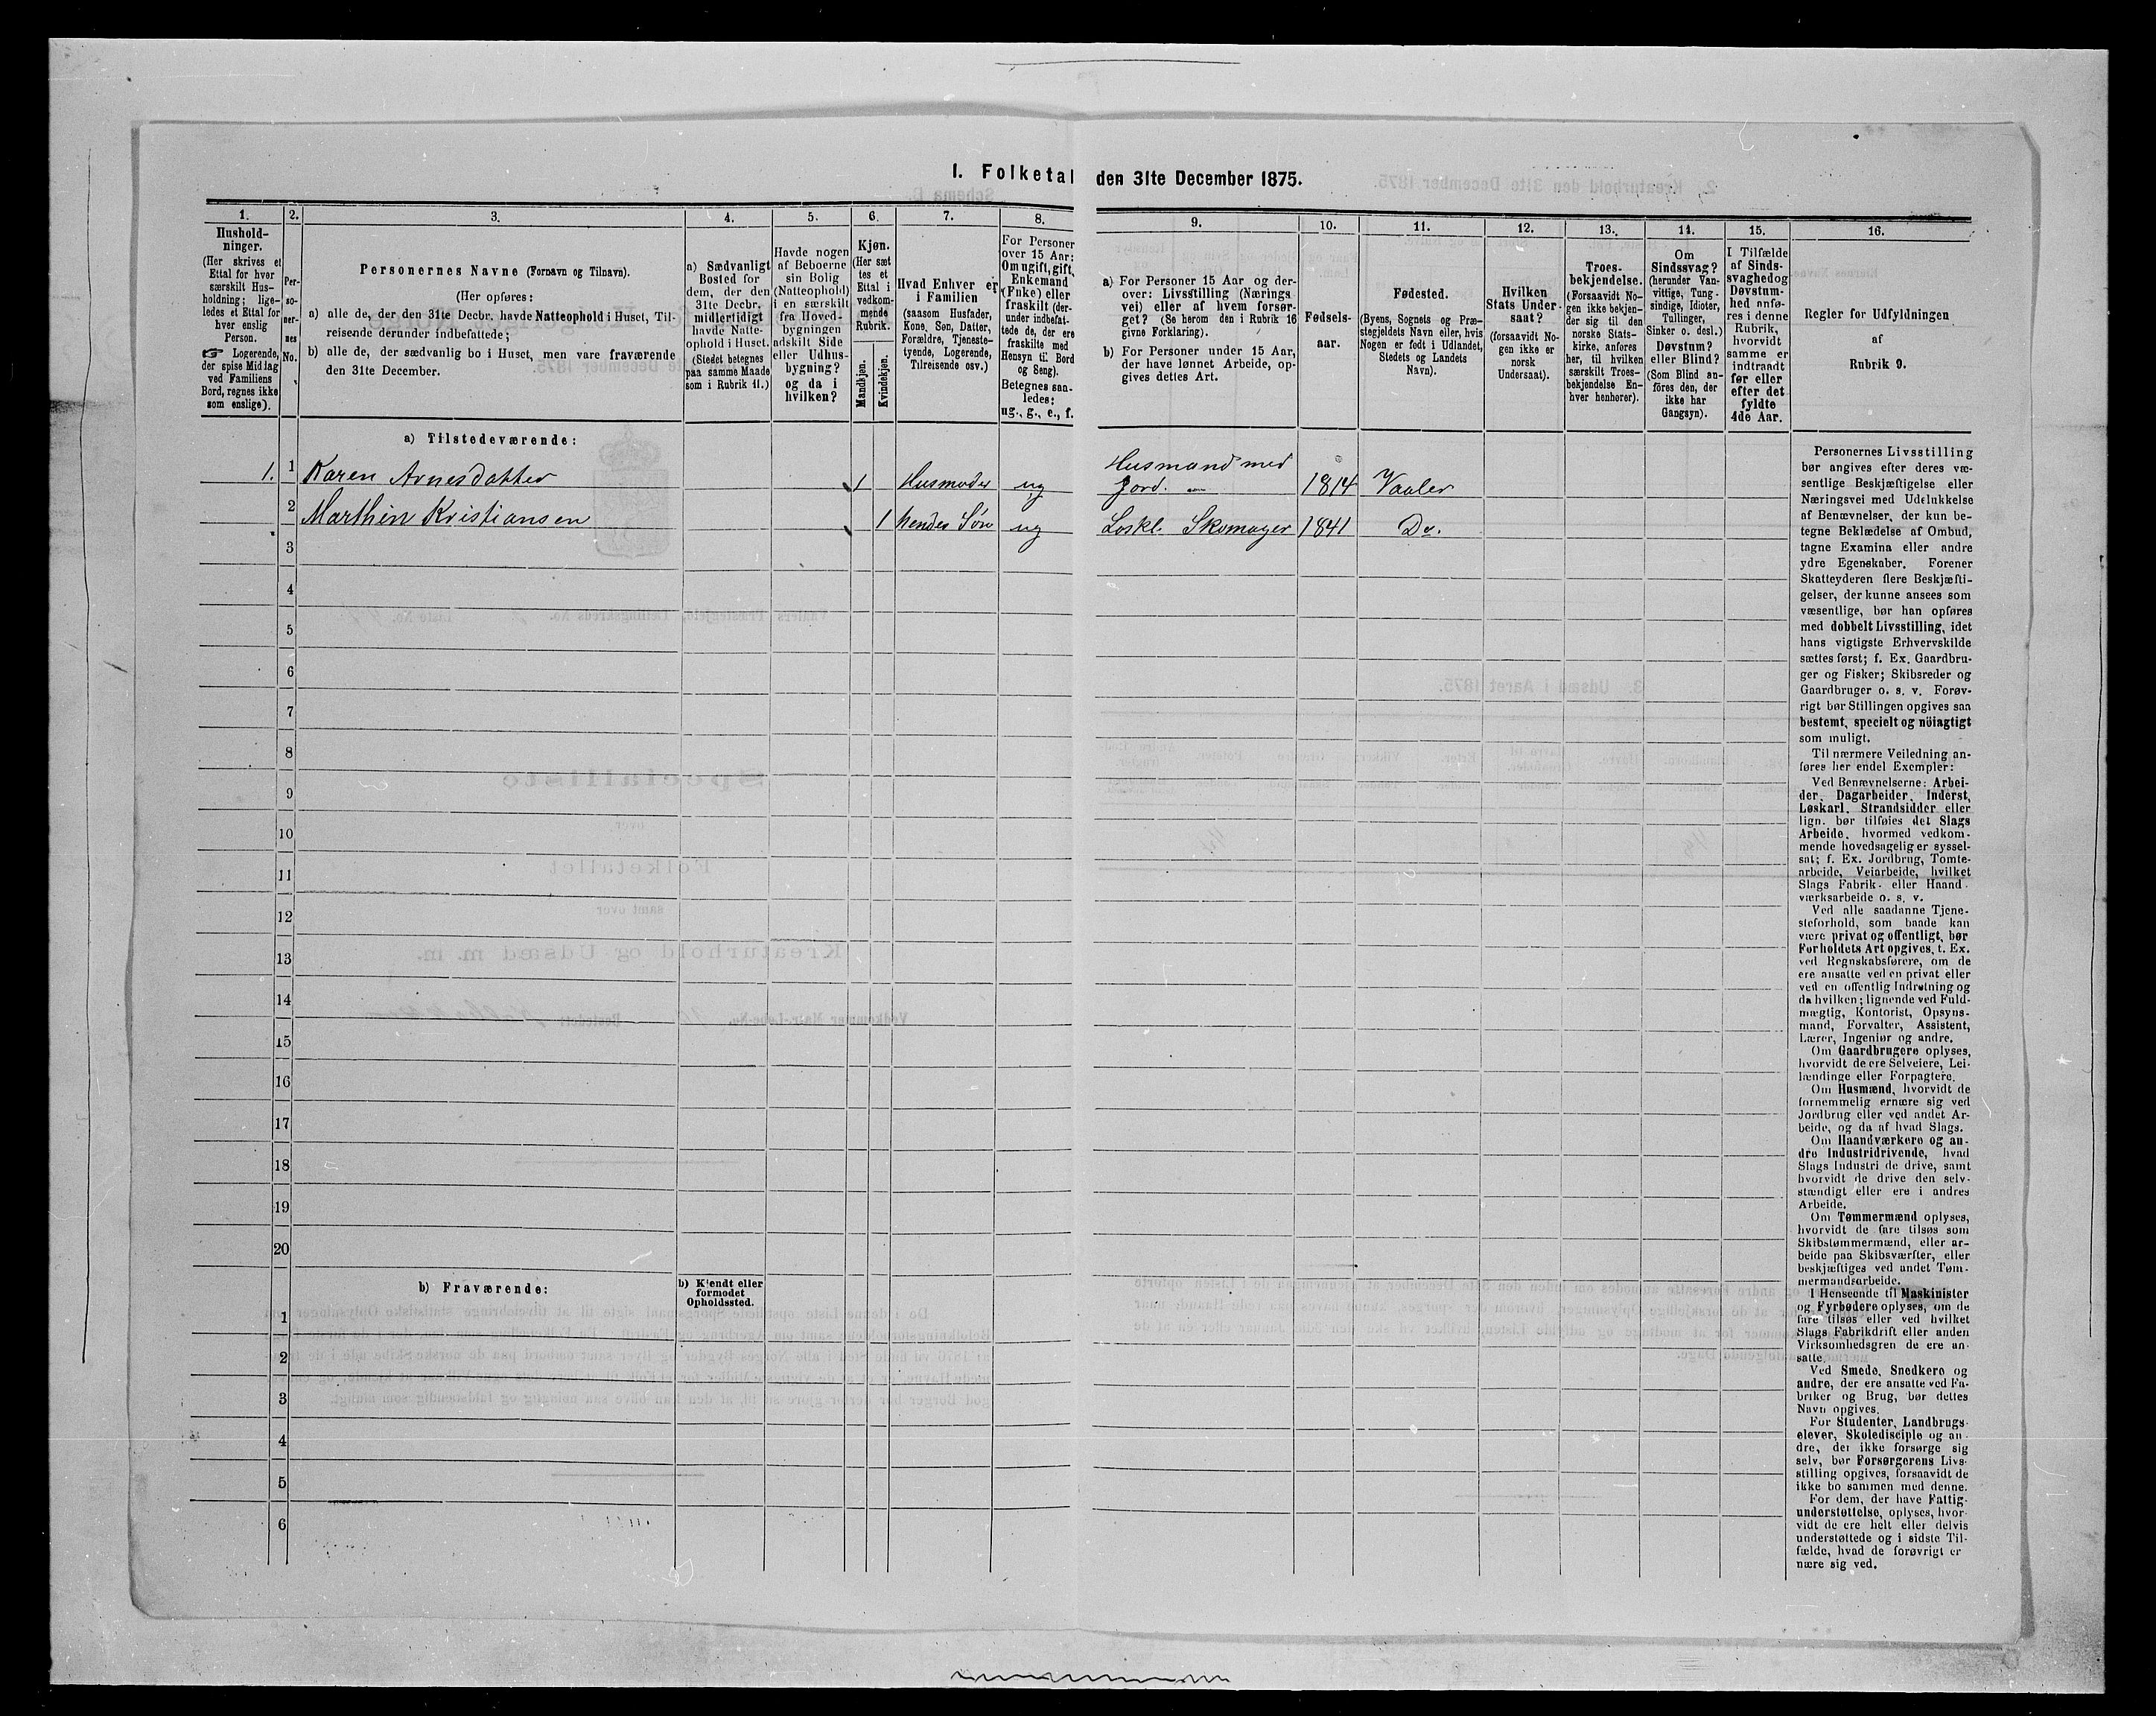 1. Folketal den 31te December 1875.
1. 2. 3. 4. 5. 6. 7. 8. 9. 10. 11. 12. 13. 14. 15. 16.
Hushold-
ninger.
(Her skrives et
Ettal for hver
særskilt Hus-
holdning; lige-
ledes et Ettal for
hver enslig
Person.
☞ Logerende,
der spise Middag
ved Familiens
Bord, regnes ikke
som enslige).
Per-
so-
ner-
nes
No.
Personernes Navne (Fornavn og Tilnavn).
(Her opføres:
a) alle de, der den 31te Decbr. havde Natteophold i Huset, Til-
reisende derunder indbefattede;
b) alle de, der sædvanlig bo i Huset, men vare fraværende
den 31te December.
a) Sædvanligt
Bosted for
dem, der den
31te Decbr.
midlertidigt
havde Natte-
ophold i Huset.
(Stedet betegnes
paa samme Maade
som i Rubrik 11.)
Havde nogen
af Beboerne
sin Bolig
(Natteophold)
i en særskilt
fra Hoved-
bygningen
adskilt Side
eller Udhus-
bygning?
og da i
hvilken?
Kjøn.
(Her sæt
tes et
Ettal i
vedkom-
mende
Rubrik.
Mandkjøn.
Kvindekjøn.
Hvad Enhver er
i Familien
(saasom Husfader,
Kone, Søn, Datter,
Forældre, Tjeneste-
tyende, Logerende,
Tilreisende osv.)
For Personer
over 15 Aar:
Om ugift, gift,
Enkemand
(Enke) eller
fraskilt (der-
under indbefat-
tede de, der ere
fraskilte med
Hensyn til Bord
og Seng).
Betegnes saa-
ledes:
ug., g., e., f.
a) For Personer 15 Aar og der-
over: Livsstilling (Nærings
vei) eller af hvem forsør-
get? (Se herom den i Rubrik 16
givne Forklaring).
b) For Personer under 15 Aar,
der have lønnet Arbeide, op-
gives dettes Art.
Fødsels-
aar.
Fødested.
(Byens, Sognets og Præ-
stegjeldets Navn eller, hvis
Nogen er født i Udlandet,
Stedets og Landets
Navn).
Hvilken
Stats Under-
saat?
(forsaavidt No-
gen ikke er
norsk
Undersaat).
Troes-
bekjendelse.
(Forsaavidt No-
gen ikke bekjen-
der sig til den
norske Stats-
kirke, anføres
her, til hvilken
særskilt Troes-
bekjendelse En-
hver henhører).
Om
Sindssvag?
(herunder Van-
vittige, Tung-
sindige, Idioter,
Tullinger,
Sinker o. desl.)
Døvstum?
eller Blind?
(Som Blind an-
föres den, der
ikke har
Gangsyn).
I Tilfælde
af Sinds-
svaghed og
Døvstum-
hed anfø-
res i denne
Rubrik,
hvorvidt
samme er
indtraadt
før eller
efter det
fyldte
4de Aar.
Regler for Udfyldningen
af
Rubrik 9.
a) Tilstedeværende:
1. 1 Karen Arnesdatter 1 Husmoder ug Husmand med
Jord. 1814 Vaaler
2 Marthin Kristiansen 1 hendes Søn ug Loskl. Skomager 1841 Do.
3
4
5
6
7
8
9
10
11
12
13
14
15
16
17
18
19
20
b) Fraværende:
b) Kjendt eller
formodet
Opholdssted.
1
2
3
4
5
6
Personernes Livsstilling
bør angives efter deres væ-
sentlige Beskjæftigelse eller
Næringsvei med Udelukkelse
af Benævnelser, der kun be-
tegne Beklædelse af Ombud,
tagne Examina eller andre
ydre Egenskaber. Forener
Skatteyderen flere Beskjæfti-
gelser, der kunne ansees som
væsentlige, bør han opføres
med dobbelt Livsstilling, idet
hans vigtigste Erhvervskilde
sættes først; f. Ex. Gaardbru-
ger og Fisker; Skibsreder og
Gaardbruger o. s. v. Forøv-
rigt bør Stillingen opgives saa
bestemt, specielt og nöiagtigt
som muligt.
Til nærmere Veiledning an-
føres her endel Exempler:
Ved Benævnelserne: Arbei-
der, Dagarbeider, Inderst,
Løskarl, Strandsidder eller
lign. bør tilføies det Slags
Arbeide, hvormed vedkom-
mende hovedsagelig er syssel-
sat; f. Ex. Jordbrug, Tomte-
arbeide, Veiarbeide, hvilket
Slags Fabrik- eller Haand-
værksarbeide o. s. v.
Ved alle saadanne Tjene-
steforhold, som baade kan
være privat og offentligt, bør
Forholdets Art opgives, t. Ex.
ved Regnskabsførere, om de
ere ansatte ved en privat eller
ved en offentlig Indretning og
da hvilken; lignende ved Fuld-
mægtig, Kontorist, Opsyns-
mand, Forvalter, Assistent,
Lærer, Ingeniør og andre.
Om Gaardbrugere oplyses,
hvorvidt de ere Selveiere, Lei-
lændinge eller Forpagtere.
Om Husmænd, hvorvidt de
fornemmelig ernære sig ved
Jordbrug eller ved andet Ar-
beide, og da af hvad Slags.
Om Haandværkere og an-
dre Industridrivende, hvad
Slags Industri de drive, samt
hvorvidt de drive den selv-
stændigt eller ere i andres
Arbeide.
Om Tømmermænd oplyses,
hvorvidt de fare tilsøs som
Skibstømmermænd, eller ar-
beide paa Skibsværfter, eller
beskjæftiges ved andet Tøm-
mermandsarbeide.
I Henseende til Maskinister
og Fyrbødere oplyses, om de
fare tilsøs eller ved hvilket
Slags Fabrikdrift eller anden
Virksomhedsgren de ere an-
satte.
Ved Smede, Snedkere og
andre, der ere ansatte ved Fa-
briker og Brug, bør dettes
Navn opgives.
For Studenter, Landbrugs-
elever, Skoledisciple og an-
dre, der ikke forsørge sig
selv, bør Forsørgerens Livs-
stilling opgives, forsaavidt de
ikke bo sammen med denne.
For dem, der have Fattig-
understøttelse, oplyses, hvor-
vidt de ere helt eller delvis
understøttede og i sidste Til-
fælde, hvad de forøvrigt er
nære sig ved.